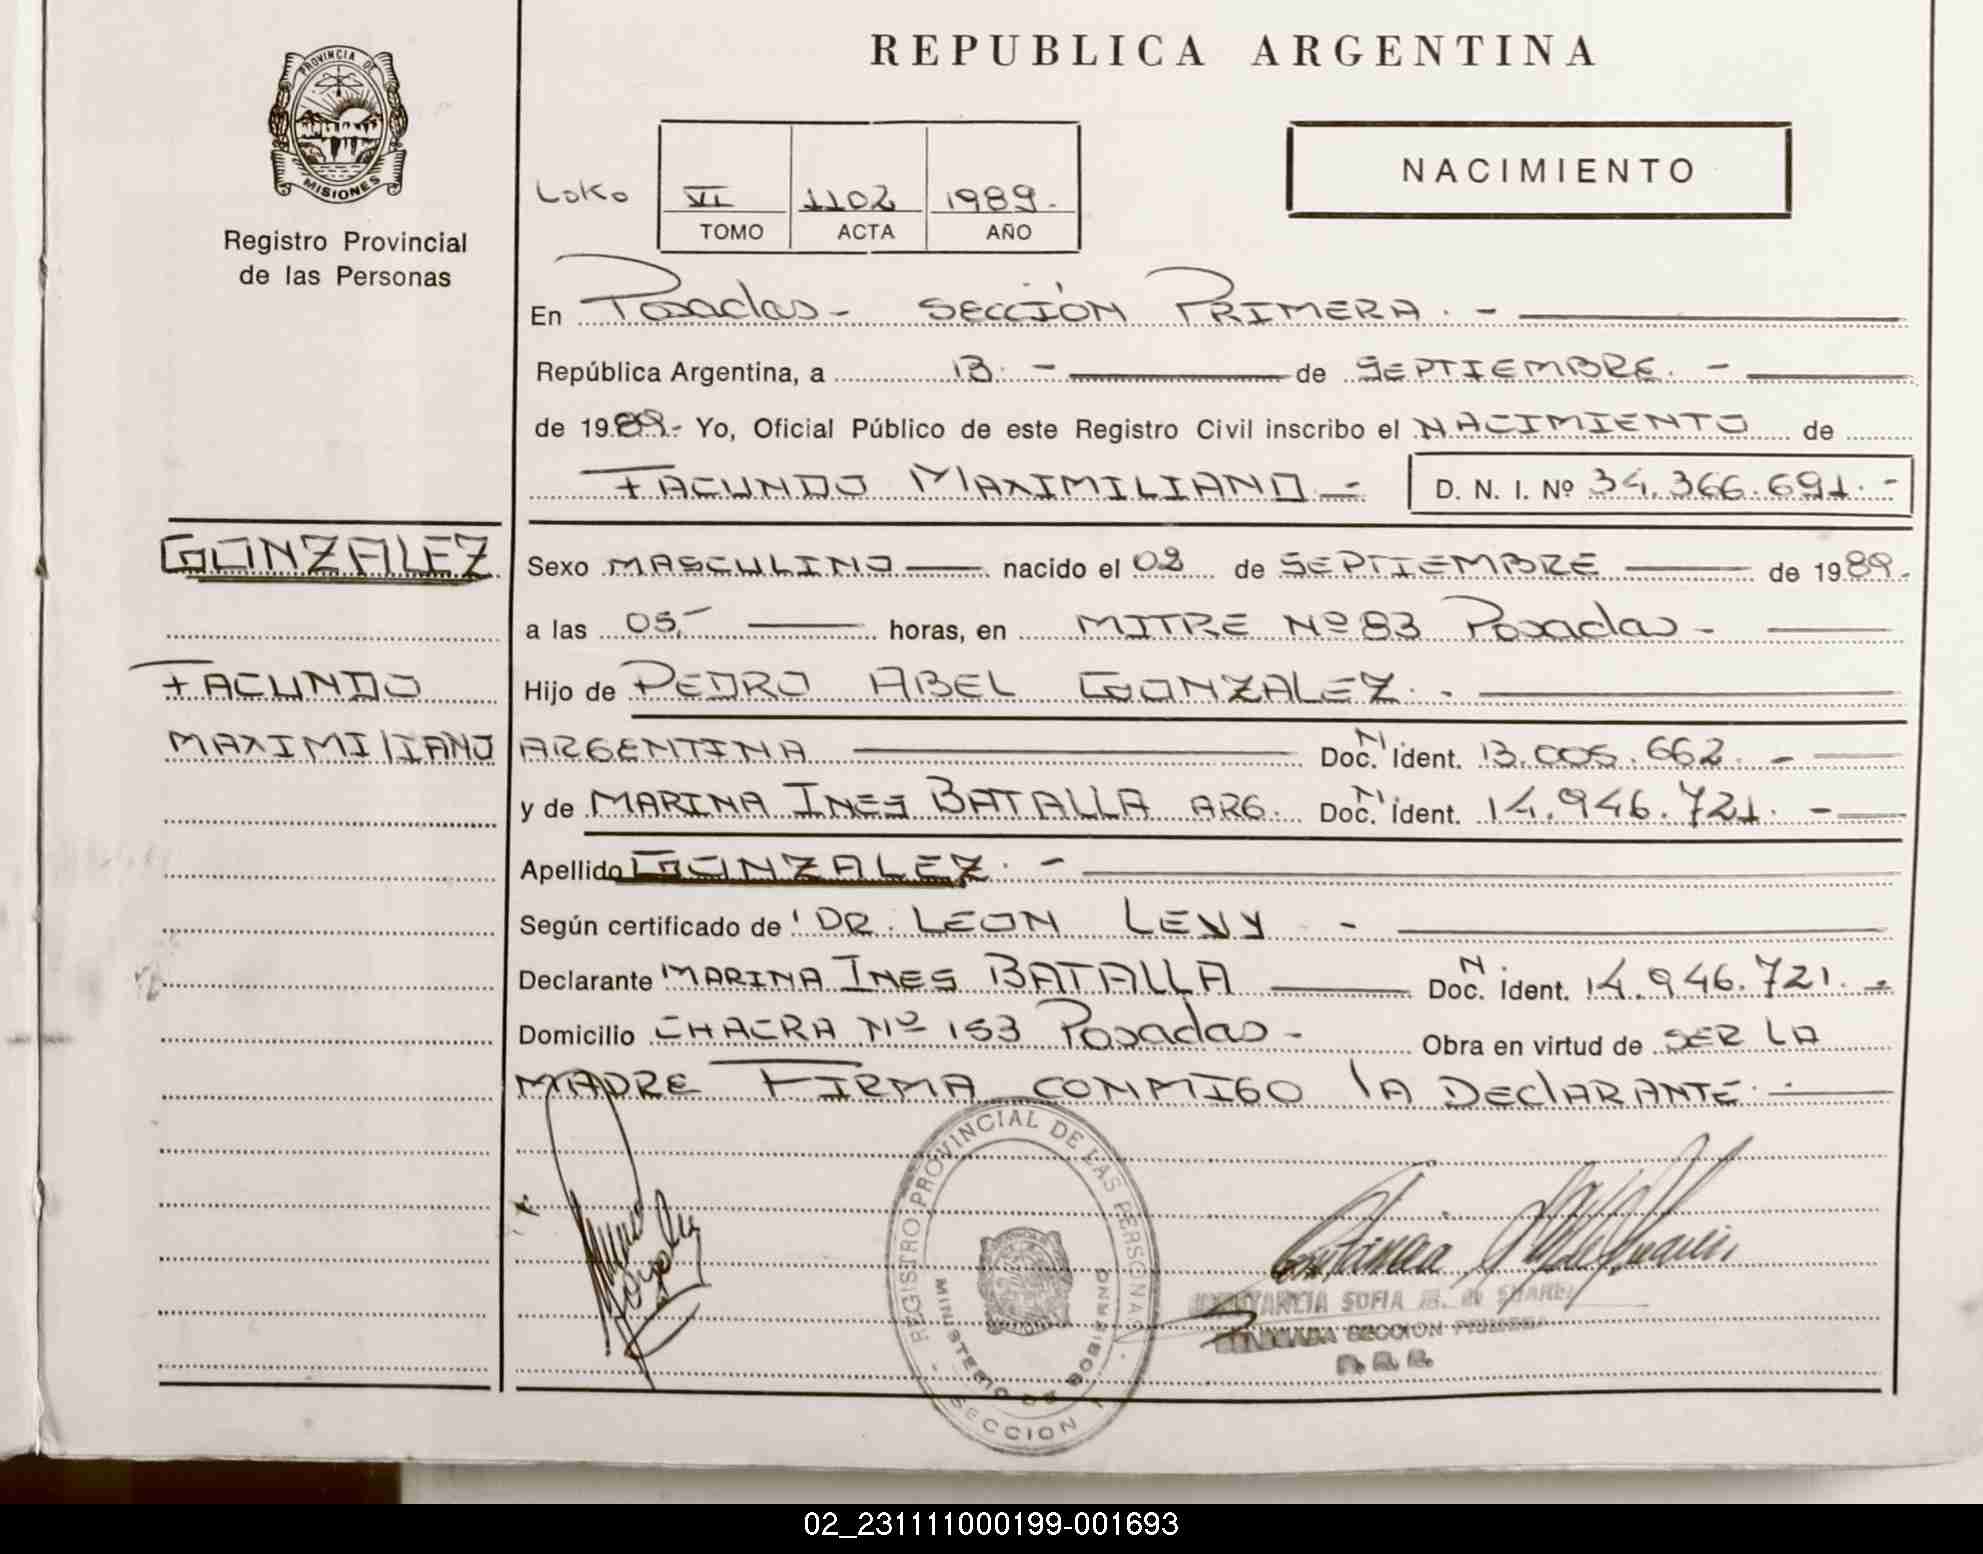 PROVINCIA DE
MISIONES
Registro Provincial
de las Personas
REPUBLICA ARGENTINA
NACIMIENTO
Loko
VI 1102 1989.
TOMO ACTA AÑO
En Posadas - SECCIÓN PRIMERA. -
República Argentina, a 13. - de SEPTIEMBRE. -
de 1989.- Yo, Oficial Público de este Registro Civil inscribo el NACIMIENTO de
FACUNDO MAXIMILIANO - D. N. I. Nº 34.366.691. -
GONZALEZ
FACUNDO
MAXIMILIANO
Sexo MASCULINO nacido el 02 de SEPTIEMBRE de 1989.
a las 05,- horas, en MITRE Nº 83 Posadas -
Hijo de PEDRO ABEL GONZALEZ. -
ARGENTINA Doc. N. Ident. 13.005.662. -
y de MARINA INES BATALLA ARG. Doc. N. Ident. 14.946.721. -
Apellido GONZALEZ. -
Según certificado de DR. LEON LEVY -
Declarante MARINA INES BATALLA Doc. N. Ident. 14.946.721. -
Domicilio CHACRA Nº 153 Posadas - Obra en virtud de SER LA
MADRE FIRMA CONMIGO LA DECLARANTE. -
REGISTRO PROVINCIAL DE LAS PERSONAS
MINISTERIO DE GOBIERNO
SECCION 1
SOFIA
SECCION PRIMERA
02_231111000199-001693